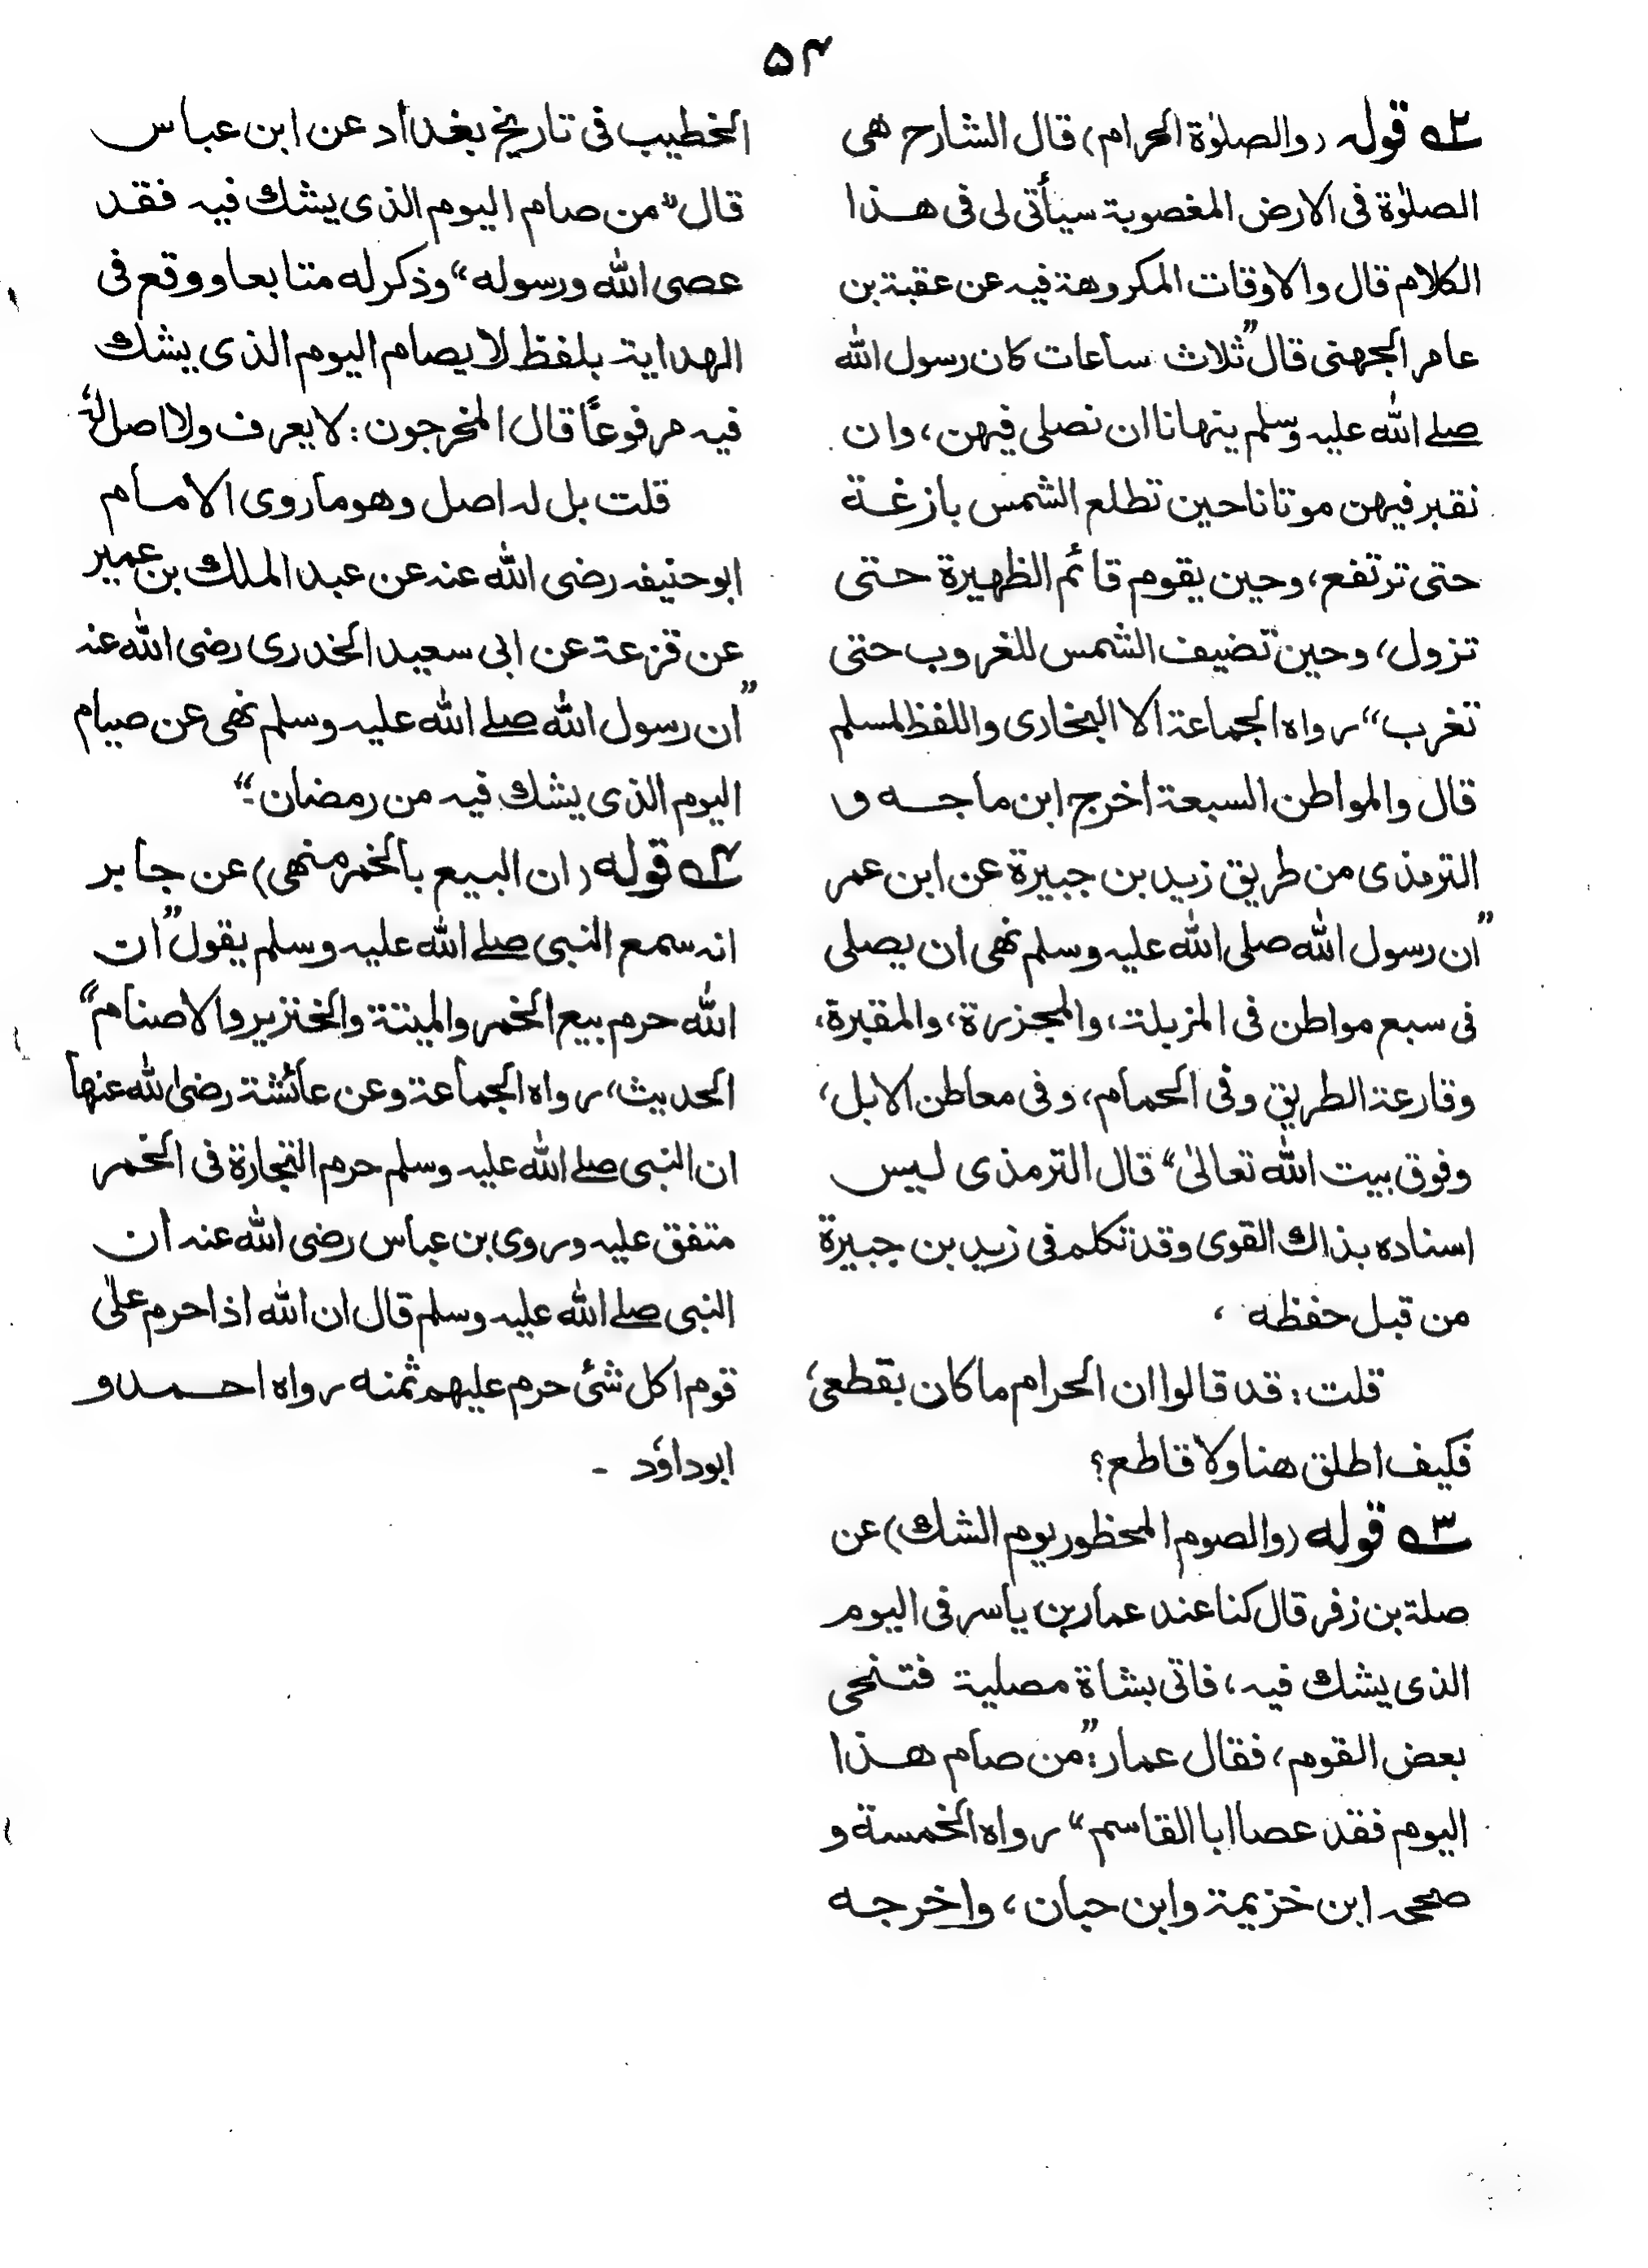 ۵۴
۲؎ قوله (والصلوٰة الحرام) قال الشارح هى
الصلوٰة فى الارض المغصوبة سيأتى لى فى هذا
الكلام قال والاوقات المكروهة فيه عن عقبة بن
عامر الجهنى قال ”ثلاث ساعات كان رسول الله
صلے الله عليه وسلم ينهانا ان نصلى فيهن، وان
نقبر فيهن موتانا حين تطلع الشمس بازغة
حتى ترتفع، وحين يقوم قائم الظهيرة حتى
تزول، وحين تضيف الشمس للغروب حتى
تغرب“ رواه الجماعة الا البخارى واللفظ لمسلم
قال والمواطن السبعة اخرج ابن ماجه و
الترمذى من طريق زيد بن جبيرة عن ابن عمر
”ان رسول الله صلى الله عليه وسلم نهى ان يصلى
فى سبع مواطن فى المزبلة، والمجزرة، والمقبرة،
وقارعة الطريق وفى الحمام، وفى معاطن الابل،
وفوق بيت الله تعالىٰ“ قال الترمذى ليس
اسناده بذاك القوى وقد تكلم فى زيد بن جبيرة
من قبل حفظه ،
قلت: قد قالوا ان الحرام ما كان بقطعى،
فكيف اطلق هنا ولا قاطع؟
۳؎ قوله (والصوم المحظور يوم الشك) عن
صلة بن زفر قال كنا عند عمار بن ياسر فى اليوم
الذى يشك فيه، فاتى بشاة مصلية فتنحى
بعض القوم، فقال عمار: ”من صام هذا
اليوم فقد عصا ابا القاسم“ رواه الخمسة و
صححه ابن خزيمة وابن حبان، واخرجه
الخطيب فى تاريخ بغداد عن ابن عباس
قال ”من صام اليوم الذى يشك فيه فقد
عصى الله ورسوله“ وذكر له متابعا ووقع فى
الهداية بلفظ لا يصام اليوم الذى يشك
فيه مرفوعًا قال المخرجون: لا يعرف ولا اصل لهٗ
قلت بل له اصل وهو ما روى الامام
ابو حنيفه رضى الله عنه عن عبد الملك بن عمير
عن قزعة عن ابى سعيد الخدرى رضى الله عنه
”ان رسول الله صلے الله عليه وسلم نهى عن صيام
اليوم الذى يشك فيه من رمضان۔“
۴؎ قوله (ان البيع بالخمر منهى) عن جابر
انه سمع النبى صلے الله عليه وسلم يقول ”ان
الله حرم بيع الخمر والميتة والخنزير والاصنام“
الحديث، رواه الجماعة وعن عائشة رضى الله عنها
ان النبى صلے الله عليه وسلم حرم التجارة فى الخمر
متفق عليه وروى بن عباس رضى الله عنه ان
النبى صلے الله عليه وسلم قال ان الله اذا حرم علىٰ
قوم اكل شئ حرم عليهم ثمنه رواه احمد و
ابوداؤد ۔